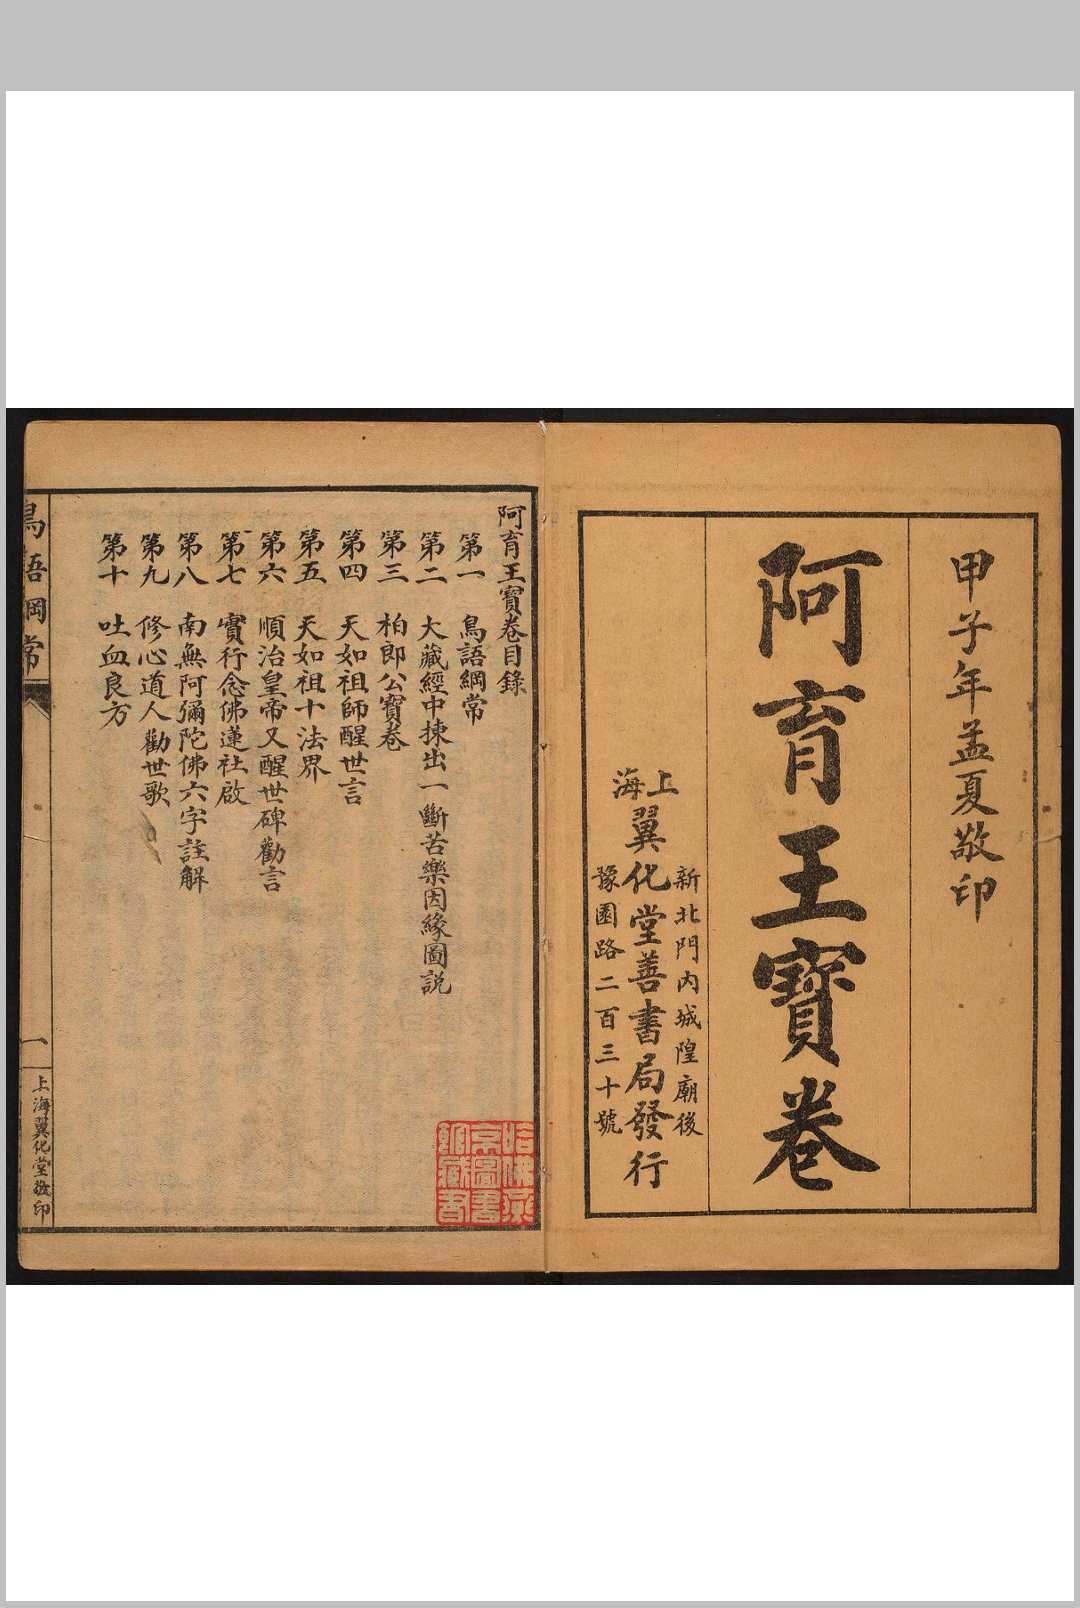 甲子年孟夏敬印
阿育王寶卷
上海
翼化堂善書局發行
新北門內城隍廟後
豫園路二百三十號
阿育王寶卷目錄
第一 鳥語綱常
第二 大藏經中揀出一斷苦樂因緣圖説
第三 柏郎公寶卷
第四 天如祖師醒世言
第五 天如祖十法界
第六 順治皇帝又醒世碑勸言
第七 實行念佛蓮社啟
第八 南無阿彌陀佛六字註解
第九 修心道人勸世歌
第十 吐血良方
鳥語綱常
一
上海翼化堂敬印
哈佛燕京圖書館藏書